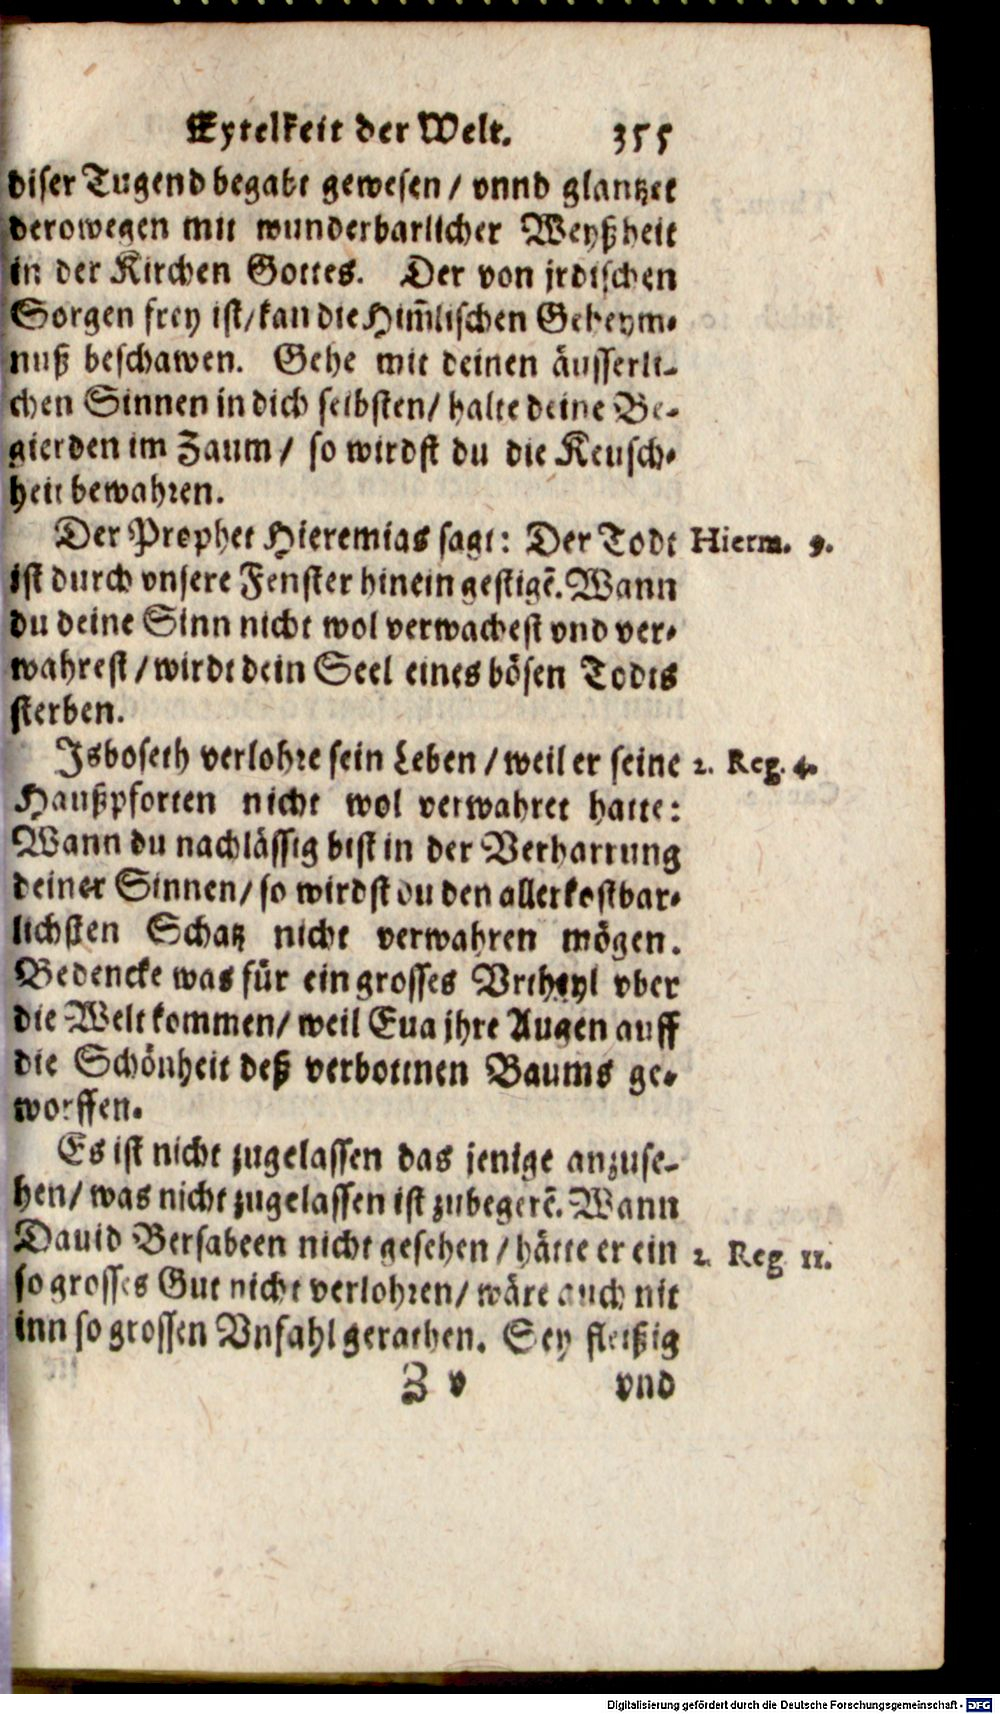 Eytelkeit der Welt. 355
diser Tugend begabt gewesen / vnnd glantzet
derowegen mit wunderbarlicher Weyßheit
in der Kirchen Gottes. Der von jrdischen
Sorgen frey ist/kan die Him̃lischen Geheym-
nuß beschawen. Gehe mit deinen äusserli-
chen Sinnen in dich selbsten/ halte deine Be-
gierden im Zaum / so wirdst du die Keusch-
heit bewahren.
Der Prophet Hieremias sagt: Der Todt Hierm. 9.
ist durch vnsere Fenster hinein gestigẽ. Wann
du deine Sinn nicht wol verwachest vnd ver-
wahrest / wirdt dein Seel eines bösen Todts
sterben.
Jsboseth verlohre sein Leben / weil er seine 2. Reg. 4.
Haußpforten nicht wol verwahret hatte:
Wann du nachlässig bist in der Verharrung
deiner Sinnen/ so wirdst du den allerkostbar-
lichsten Schatz nicht verwahren mögen.
Bedencke was für ein grosses Vrtheyl vber
die Welt kommen/ weil Eua jhre Augen auff
die Schönheit deß verbottnen Baums ge-
worffen.
Es ist nicht zugelassen das jenige anzuse-
hen/ was nicht zugelassen ist zubegerẽ. Wann
Dauid Bersabeen nicht gesehen / hätte er ein 2. Reg 11.
so grosses Gut nicht verlohren/ wäre auch nit
inn so grossen Vnfahl gerathen. Sey fleißig
Z v vnd
Digitalisierung gefördert durch die Deutsche Forschungsgemeinschaft - DFG